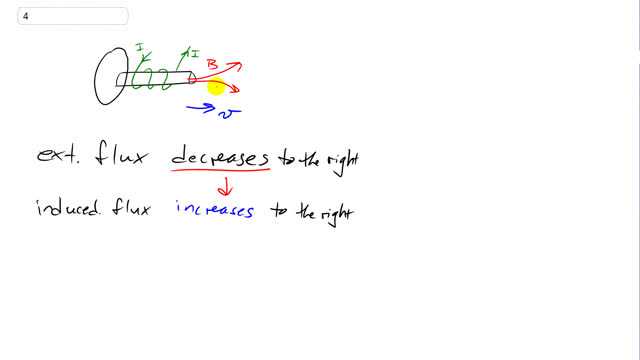 4
I I
B
v
ext. flux decreases to the right
induced flux increases to the right